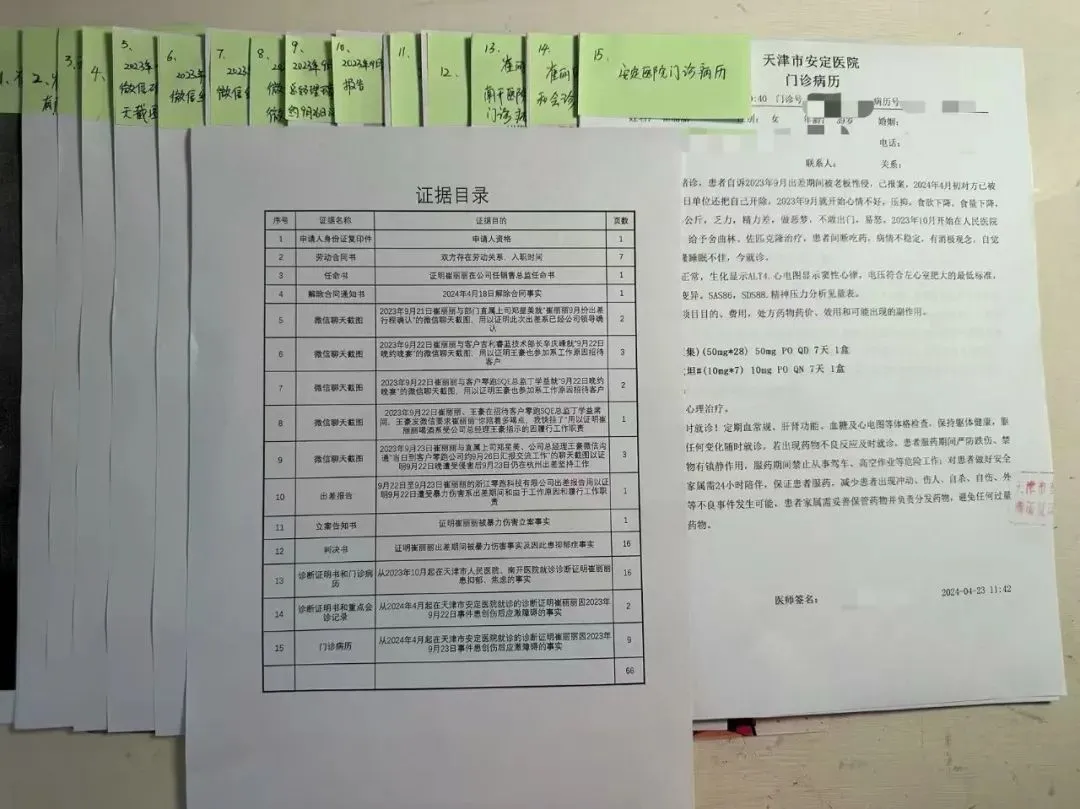 1、
2、
3、
4、
5、
2023年
微信
天截图
6、
2023年
微信
7、
2023
微信
8、
微
9、
2023年9
总经理
约9月26日
10、
2023年9月
报告
11、
12、
13、
崔丽
南开医院
门诊病
14、
崔丽
和会诊
15、
安定医院门诊病历
天津市安定医院
门诊病历
:40 门诊号
病历号
女
年龄:
婚姻:
电话:
联系人:
关系:
诊，患者自诉2023年9月出差期间被老板性侵，已报案，2024年4月初对方已被
日单位还把自己开除，2023年9月就开始心情不好，压抑，食欲下降、食量下降，
公斤，乏力，精力差，做恶梦，不敢出门，易怒。2023年10月开始在人民医院
给予舍曲林、佐匹克隆治疗，患者间断吃药，病情不稳定，有消极观念，自觉
睡眠不佳，今就诊。
正常，生化显示ALT4.心电图显示窦性心律，电压符合左心室肥大的最低标准，
变异，SAS86，SDS88.精神压力分析见量表。
项目目的、费用，处方药物药价、效用和可能出现的副作用。
(50mg*28) 50mg PO QD 7天 1盒
(10mg*7) 10mg PO QN 7天 1盒
心理治疗。
时就诊！定期血常规、肝肾功能、血糖及心电图等体格检查，保持躯体健康，服
任何变化随时就诊，若出现药物不良反应及时就诊，患者服药期间严防跌伤、禁
物有镇静作用，服药期间禁止从事驾车、高空作业等危险工作；对患者做好安全
家属需24小时陪伴，保证患者服药，减少患者出现冲动、伤人、自杀、自伤、外
等不良事件发生可能，患者家属需妥善保管药物并负责分发药物，避免任何过量
药物。
天津市
医师签名:
2024-04-23 11:42
证据目录
序号 证据名称 证据目的 页数
1 申请人身份证复印件 申请人资格 1
2 劳动合同书 双方存在劳动关系、入职时间 7
3 任命书 证明崔丽丽在公司任销售总监任命书 1
4 解除合同通知书 2024年4月18日解除合同事实 1
5 微信聊天截图 2023年9月21日崔丽丽与部门直属上司郑星美就"崔丽丽9月份出差
行程确认"的微信聊天截图，用以证明此次出差系已经公司领导确
认 2
6 微信聊天截图 2023年9月22日崔丽丽与客户吉利睿蓝技术部长辛庆峰就"9月22日
晚约晚宴"的微信聊天截图，用以证明王豪也参加系工作原因招待
客户 3
7 微信聊天截图 2023年9月22日崔丽丽与客户零跑SQE总监丁学益就"9月22日晚约
晚宴"的微信聊天截图，用以证明王豪也参加系工作原因招待客户 2
8 微信聊天截图 2023年9月22日崔丽丽、王豪在招待客户零跑SQE总监丁学益席
间，王豪发微信要求崔丽丽"你陪着多喝点，我快挂了"用以证明崔
丽丽喝酒系受公司总经理王豪指示的因履行工作职责 1
9 微信聊天截图 2023年9月23日崔丽丽与直属上司郑星美、公司总经理王豪微信沟
通"当日到客户零跑公司约9月26日汇报交流工作"的聊天截图以证
明9月22日晚遭受侵害后9月23日仍在杭州出差坚持工作 3
10 出差报告 9月22日至9月23日崔丽丽的浙江零跑科技有限公司出差报告用以证
明9月22日遭受暴力伤害系出差期间和由于工作原因和履行工作职
责 1
11 立案告知书 证明崔丽丽被暴力伤害立案事实 1
12 判决书 证明崔丽丽出差期间被暴力伤害事实及因此患抑郁症事实 16
13 诊断证明书和门诊病
历 从2023年10月起在天津市人民医院、南开医院就诊诊断证明崔丽丽
患抑郁、焦虑的事实 16
14 诊断证明书和重点会
诊记录 从2024年4月起在天津市安定医院就诊的诊断证明崔丽丽因2023年
9月22日事件患创伤后应激障碍的事实 2
15 门诊病历 从2024年4月起在天津市安定医院就诊的诊断证明崔丽丽因2023年
9月23日事件患创伤后应激障碍的事实 9
66